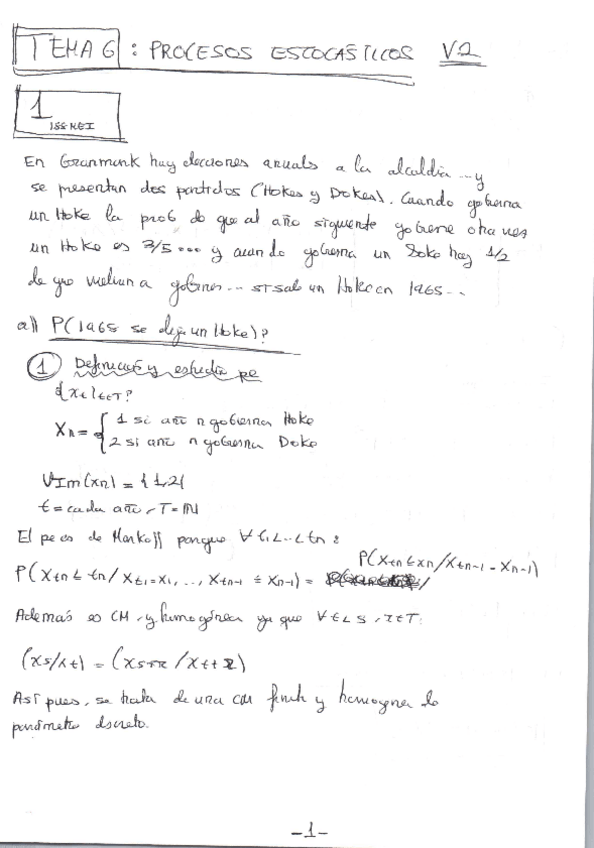 TEMA 6 : PROCESOS ESTOCÁSTICOS V.2
1
ISS-REI
En Granmunk hay elecciones anuals a la alcaldía ... y
se presentan dos partidos (Hokes y Dokes). Cuando gobierna
un Hoke la prob de que al año siguiente gobierne otra vez
un Hoke es 3/5 ... y cuando gobierna un Doke hay 1/2
de que vuelvan a gobernar... si sale un Hoke en 1965...
a)) P(1965 se elija un Hoke)?
1 Definición y estudio pe
{xt}t∈T?
Xn = { 1 si año n gobierna Hoke
2 si año n gobierna Doke
Im(xn) = {1,2}
t = cada año, T = ℕ
El pe es de Markoff porque ∀ t1<...<tn :
P(Xtn ≤ tn / Xt1=x1, ..., Xtn-1 = xn-1) = P(Xtn ≤ xn / Xtn-1 = Xn-1)
Además es CM, y homogénea ya que ∀ t<s, r∈T:
(xs/xt) = (xs+r / xt+r)
Así pues, se trata de una CM finita y homogénea de
parámetro discreto.
-1-